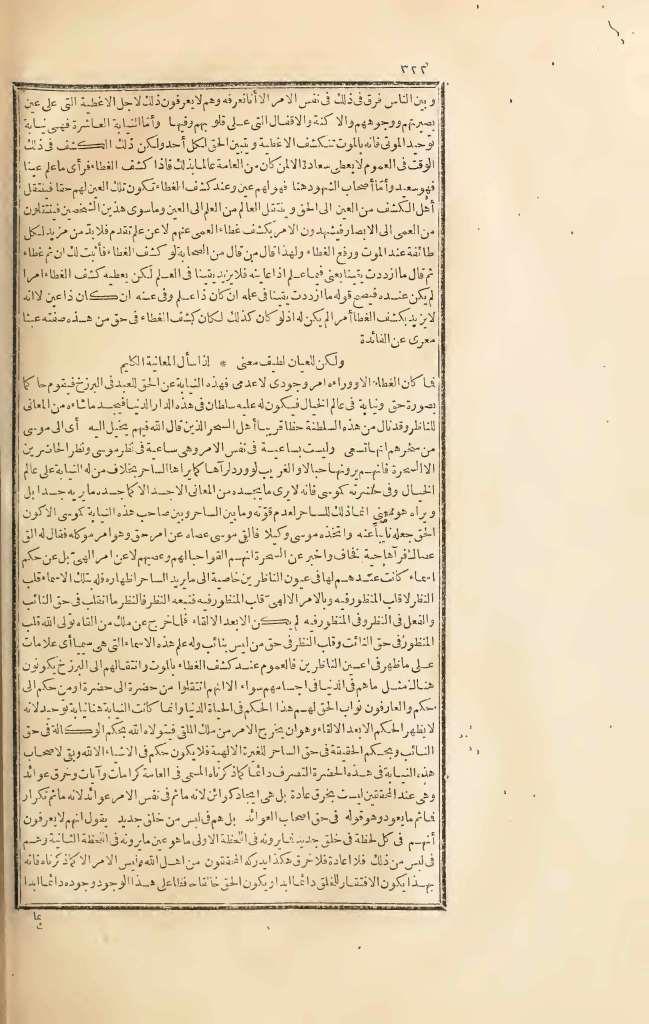 ٣٢٣
وبين الناس فرق فى ذلك فى نفس الامر الا أنا نعرفه وهم لا يعرفون ذلك لاجل الاغطية التى على عين
بصيرتهم ووجوههم والاكنة والاقفال التى عـلى قلوبهم وفيها وأما النيابة العاشرة فهى نيابة
توحيد الموتى فانه بالموت تنكشف الاغطية ويتبين الحق لكل أحد ولكن ذلك الكشف فى ذلك
الوقت فى العموم لا يعطى سعادة الا لمن كان من العامة عالما بذلك فاذا كشف الغطاء فرأى ما علم عينا
فهو سعيد وأما أصحاب الشهود هنا فهو لهم عين وعند كشف الغطاء تكون تلك العين لهم حقا فينتقل
أهل الكشف من العين الى الحق وينتقل العالم من العلم الى العين وما سوى هذين الشخصين فينتقلون
من العمى الى الابصار فيشهدون الامر بكشف غطاء العمى عنهم لا عن علم تقدم فلا بد من مزيد لكل
طائفة عند الموت ورفع الغطاء ولهذا قال من قال من الصحابة لو كشف الغطاء فأثبت لك ان ثم غطاء
ثم قال ما ازددت يقينا يعنى فيما علم اذا عاينه فلا يزيد يقينا فى العـلم لكن يعطيه كشف الغطاء امرا
لم يكن عنـده فيصح قوله ما ازددت يقينا فى علمه ان كان ذا علم وفى عينه ان كان ذا عين لا انه
لا يزيد بكشف الغطاء أمر الم يكن له اذ لو كان كذلك لكان كشف الغطاء فى حق من هـذه صفته عبثا
معرى عن الفائدة
ولكن للعيان لطيف معنى * لذا سأل المعاينة الكليم
فما كان الغطاء الا ووراءه امر وجودى لا عدمى فهذه النيابة عن الحق للعبد فى البرزخ فيقوم حاكما
بصورة حق ونيابة فى عالم الخيال فيكون له عليه سلطان فى هذه الدار الدنيا فيجسد ما شاء من المعانى
للناظر وقد نال من هذه السلطنة حظا قريبا أهل السحر الذين قال الله فيهم يخيل اليه أى الى موسى
من سحرهم انها تسعى وليست بساعية فى نفس الامر وهى ساعية فى نظر موسى ونظر الحاضرين
الا السحرة فانهـم يرونها حبالا والغريب لو ورد لرآها كما يراها الساحر بخلاف من له النيابة على عالم
الخيال وفى حضرته كموسى فانه لا يرى ما يجسده من المعانى الاجسد الا كما جسده ما يريه جسدا بل
ويراه هو معنى انما ذلك للساحر لعدم قوته وما بين الساحر وبين صاحب هذه النيابة كموسى الا كون
الحق جعله نائبا عنه واتخذه موسى وكيلا فألقى موسى عصاه عن امر حق وهو امر موكله فقال له ألق
عصاك فرآها حية فخاف واخبر عن السحرة انهم القوا حبالهم وعصيهم لا عن امر الهى بل عن حكم
اسماء كانت عندهـم لها فى عيون الناظرين خاصية الى ما يريد الساحر اظهاره فله بتلك الاسماء قلب
النظر لا قلب المنظور فيه وبالامر الالهى قلب المنظور فيه فتبعه النظر فالنظر ما انقلب فى حق النائب
والفعل فى النظر وفى المنظور فيه لم يكن الا بعد الالقاء فلما خرج عن ملك من القاه تولى الله قلب
المنظور فى حق النائب وقلب النظر فى حق من ليس بنائب وله علم هذه الاسماء التى هى سيمياء أى علامات
عـلى ما ظهر فى اعـين الناظرين فالعموم عند كشف الغطاء بالموت وانتقالهم الى البرزخ يكونون
هنالك مثل ما هم فى الدنيا فى اجسامهم سواء الا انهم انتقلوا من حضرة الى حضرة او من حكم الى
حكم والعارفون نواب الحق لهـم هذا الحكم فى الحياة الدنيا وانما كانت النيابة هنا نيابة توحيد لانه
لا يظهر الحكم الا بعد الالقاء وهو ان يخرج الامر من ملك الملقى فيتولاه الله بحكم الوكالة فى حق
النائب وبحكم الحقيقة فى حق الساحر للغيرة الالهية فلا يكون حكم فى الاشياء الا لله وبقى لاصحاب
هذه النيابة فى هـذه الحضرة التصرف دائما كما ذكرناه المسمى فى العامة كرامات وآيات وخرق عوائد
وهى عند المحققين ليست بخرق عادة بل هى ايجاد كوائن لانه ما ثم فى نفس الامر عوائد لانه ما ثم تكرار
فما ثم ما يعود وهو قوله فى حق اصحاب العوائد بل هم فى لبس من خلق جديد يقول انهم لا يعرفون
أنهم فى كل لحظة فى خلق جديد فما يرونه فى اللحظة الاولى ما هو عين ما يرونه فى اللحظة الثانية وهم
فى لبس من ذلك فلا اعادة فلا خرق هكذا يدركه المحققون من اهـل الله وليس الامر الا كما ذكرناه فانه
بهذا يكون الافتقار للخلق دائما ابدا ويكون الحق خالقا حافظا على هـذا الوجود وجوده دائما ابدا